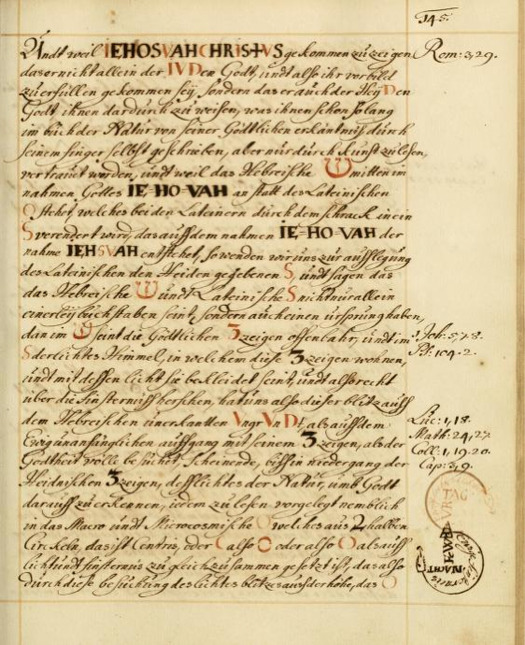 145.
Undt weil IEHOSVAH CHRISTVS gekommen zu zeigen
das er nicht allein der IVDen Godt, undt also ihr vorbild
zu erfüllen gekommen seÿ, sondern das er auch der HeÿDen
Godt ihnen dardurch zu weisen, was ihnen schon so lang
im buch der Natur von seiner Göttlichen erkäntnis durch
seinem finger selbst geschrieben, aber nur durch kunst zu lesen,
vertrauet worden, undt weil das Hebreische ש mitten im
nahmen Gottes IE-HO-VAH an statt des Lateinischen
S stehet, welches bei den Lateinern durch dem schrack in ein
S verendert wird, das auss dem nahmen IE-HO-VAH der
nahme IEHSVAH entstehet, so wenden wir uns zur ausslegung
des Lateinischen den Heiden gegebenen S, undt sagen das
das Hebreische ש undt Lateinische S nicht nur allein
einerleÿ buchstaben seint, sondern auch einen ursprung haben,
dan im ש seint die Göttlichen 3 zeigen offenbahr, undt im
S der lichtes Himmel, in welchem diese 3 zeigen wohnen,
undt mit dessen licht sie bekleidet seint, undt alss recht
über die finsterniss herschen, hat uns also dieser blitz auss
dem Hebreischen unerkantten VngrVnDt, als auss dem
Ewig unanfänglichen auffgang mit seinem 3 zeigen, als der
Godtheit volle besuchet, scheinende, biss in niedergang der
Heidnischen 3 zeigen, dess lichtes der Natur, umb Godt
darauss zu erkennen, jedem zu lesen vorgelegt nemblich
in das Macro undt Microcosmische O welches aus 2 halben
Circkeln, das ist Centris, oder C also O oder also O als auss
licht undt finsternis zu gleich zusammen gesetzt ist, das also
durch diese besuchung des lichtes blitzes aus der höhe, das O
Rom: 3, 29.
1 Joh: 5, 7. 8.
Ps: 104. 2.
Luc: 1, 18.
Math: 24, 27.
Coll: 1, 19. 20.
Cap: 3, 9.
TAG
NACHT